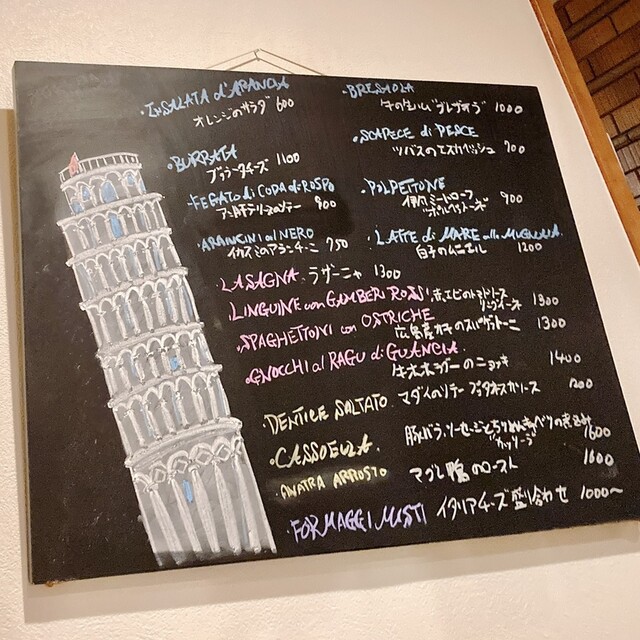 ・INSALATA d'ARANCIA
オレンジのサラダ 600
・BURRATA
ブッラータチーズ 1100
・FEGATO di CODA di ROSPO
900
・ARANCINI al NERO
イカスミのアランチーニ 950
・BRESAOLA
牛の生ハム"ブレザオラ" 1000
・SCAPECE di PESCE
ツバスのエスカベッシュ 900
・POLPETTONE
伊風ミートローフ
"ポルペットーネ" 900
・LATTE di MARE alla MUGNAIA
白子のムニエル 1200
・LASAGNA ラザーニャ 1300
・LINGUINE con GAMBERI ROSSI 赤エビのトマトソース
リングイーネ 1300
・SPAGHETTONI con OSTRICHE
広島産カキのスパゲットーニ 1300
・GNOCCHI al RAGU di GUANCIA
牛ホホラグーのニョッキ 1400
・DENTICE SALTATO マダイのソテー プッタネスカソース 1200
・CASSOEULA 豚バラ、ソーセージとちりめんキャベツの煮込み
"カッソーラ" 1600
・ANATRA ARROSTO マグレ鴨のロースト 1600
・FORMAGGI MISTI イタリアチーズ盛り合わせ 1000〜